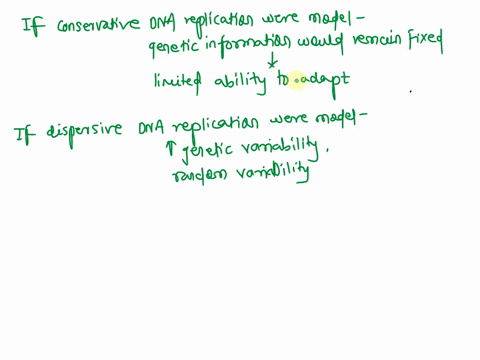 If conservative DNA replication were model -
genetic information would remain fixed
↓
limited ability to adapt
If dispersive DNA replication were model -
↑ genetic variability,
random variability